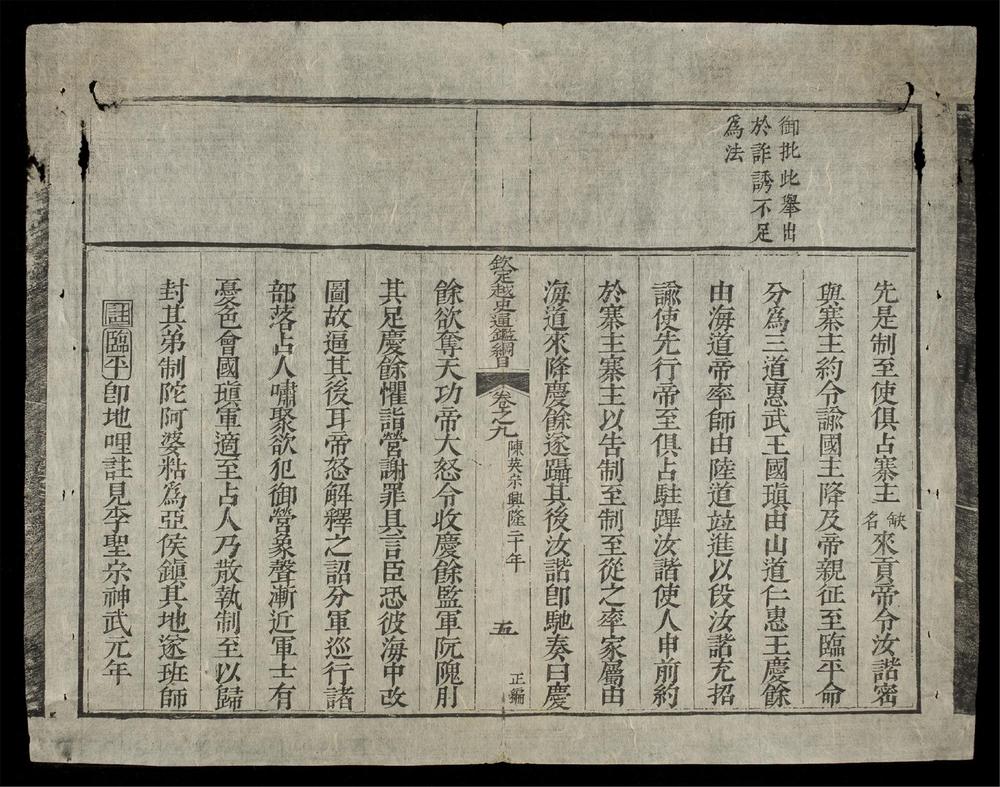 御批此舉出
於詐誘不足
爲法
先是制至使俱占寨主缺名來貢帝令汝諧密
與寨主約令諭國主降及帝親征至臨平命
分為三道惠武王國瑱由山道仁惠王慶餘
由海道帝率師由陸道並進以段汝諧充招
諭使先行帝至俱占駐蹕汝諧使人申前約
於寨主寨主以告制至制至從之率家屬由
海道來降慶餘遂躡其後汝諧卽馳奏曰慶
欽定越史通鑑綱目
卷之九
陳英宗興隆二十年
五
正編
餘欲奪天功帝大怒令收慶餘監軍阮隗刖
其足慶餘懼詣營謝罪具言臣恐彼海中改
圖故逼其後耳帝怒解釋之詔分軍巡行諸
部落占人嘯聚欲犯御營象聲漸近軍士有
憂色會國瑱軍適至占人乃散執制至以歸
封其弟制陀阿婆粘爲亞侯鎮其地遂班師
註臨平卽地哩註見李聖尊神武元年